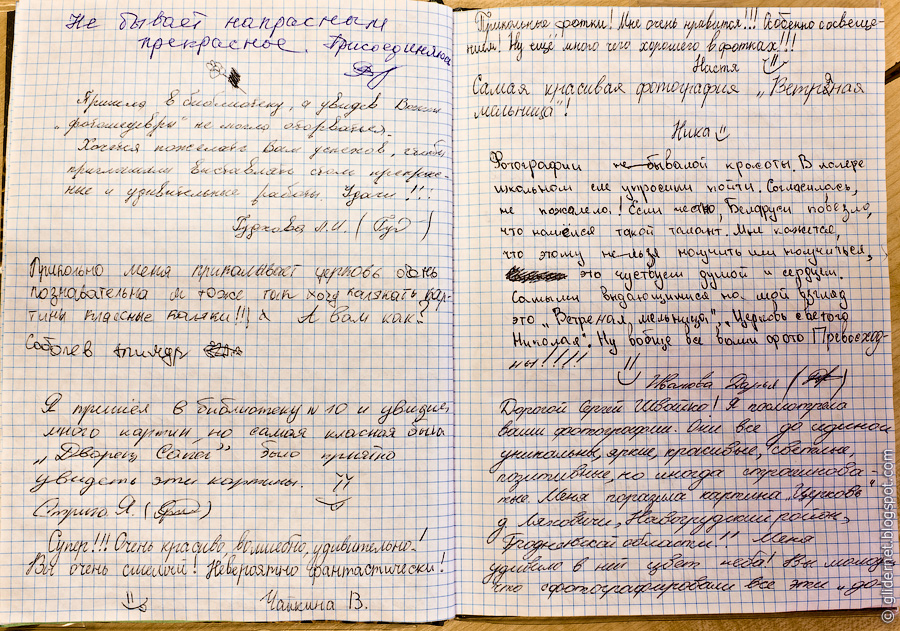 Не бывает напрасным
прекрасное. Присоединяюсь
Пришла в библиотеку, а увидев Ваши
„фотошедевры" не могла оторваться.
Хочется пожелать Вам успехов, чтобы
приглашали выставлять столь прекрас-
ные и удивительные работы. Удачи!!!
Гудкова Л.И. (Гуд)
Прикольно меня прикалывает церковь очень
познавательна я тоже тип хочу калякать кар-
тины классные каляки!!! А вам как?
Соболев
Я пришёл в библиотеку №10 и увидел
много картин, но самая класная была
„Дворец Сапег" было приятно
увидеть эти картины.
Стрига Я.
Супер!!! Очень красиво, волшебно, удивительно!
Вы очень смелый! Невероятно фантастически!
Чайкина В.
Прикольные фотки! Мне очень нравится!!! Особенно освеще-
нием! Ну ещё много чего хорошего в фотках!!!
Настя
Самая красивая фотография „Ветреная
мельница"!
Ника
Фотографии не бывалой красоты. В лагере
школьном еле упросили пойти. Согласилась,
не пожалела! Если честно, Беларуси повезло,
что нашёлся такой талант. Мне кажется,
что этому нельзя научить или научиться,
это чувствуем душой и сердцем.
Самыми выдающимися на мой взгляд
это „Ветреная, мельница", „Церковь святого
Николая". Ну вобще все ваши фото Превосход-
ны!!!!!
Иванова Дарья
Дорогой Сергей Швайко! Я посмотрела
ваши фотографии. Они все до единой
уникальны, яркие, красивые, светлые,
позитивные, но иногда страшнова-
тые. Меня поразила картина „Церковь"
д. Ляховичи, Новогрудский район,
Гродненской области!! Меня
удивило в ней цвет неба! Вы молодец
что сфотографировали все эти „до-
© glidernet.blogspot.com